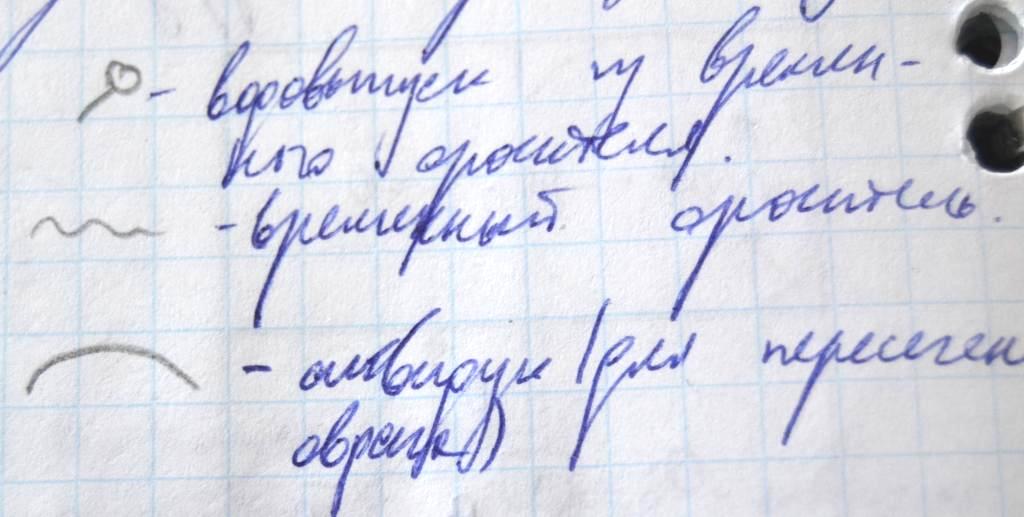 - водовыпуск из времен-
ного оросителя.
- временный ороситель.
- акведук (для пересечен
оврага)